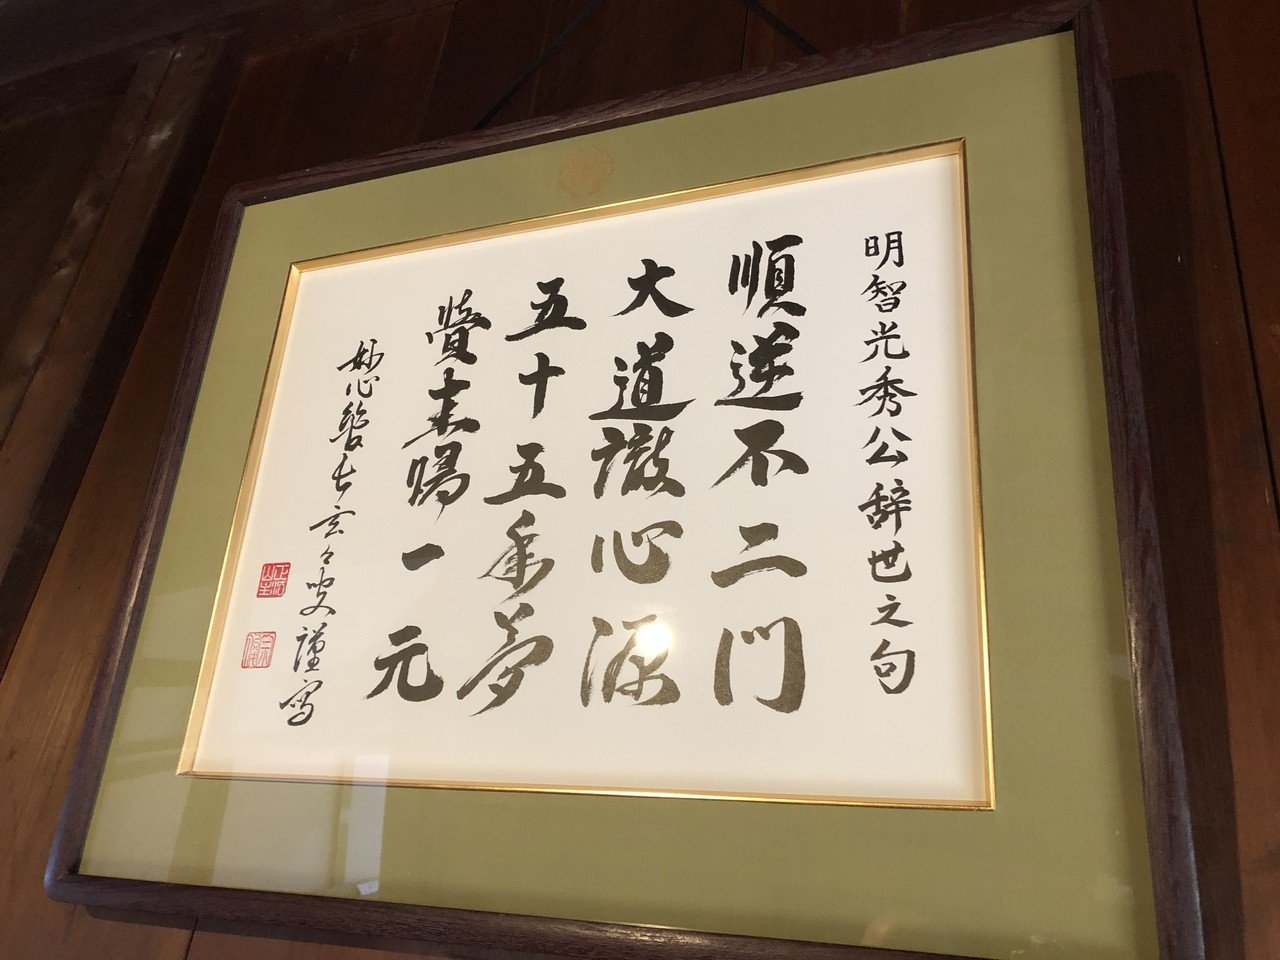 明智光秀公辞世之句
順逆不二門
大道徹心源
五十五年夢
覺来歸一元
妙心管長玄々叟謹写